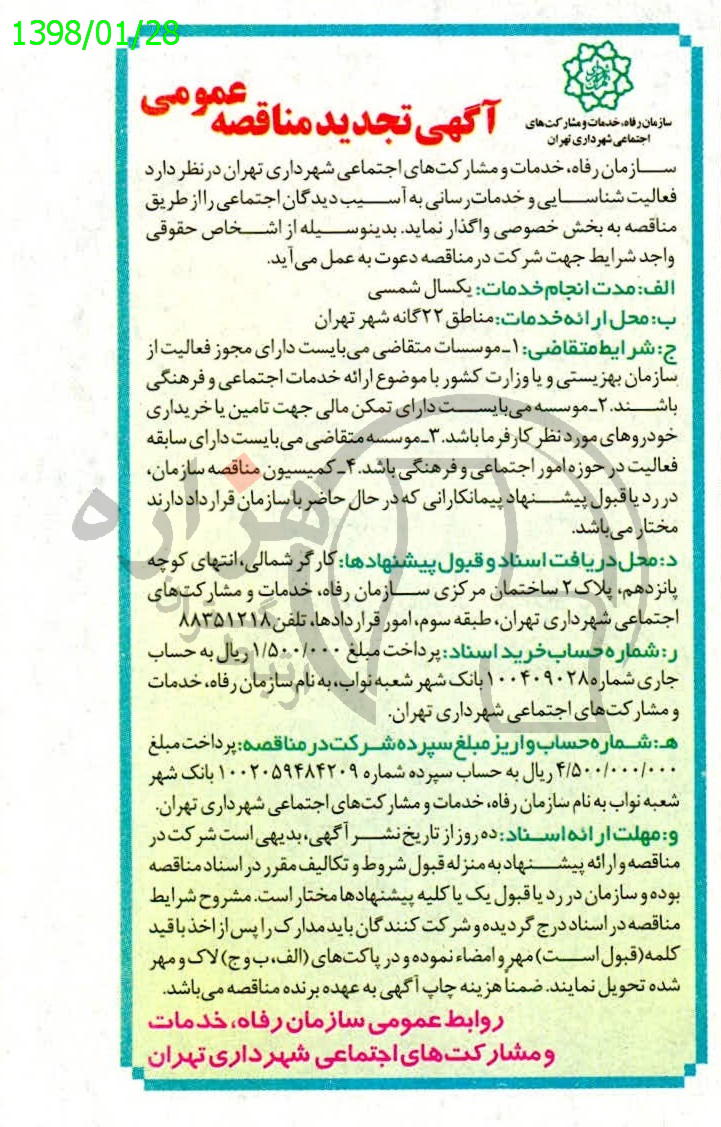 1398/01/28
سازمان رفاه، خدمات و مشارکت‌های
اجتماعی شهرداری تهران
آگهی تجدید مناقصه عمومی
سازمان رفاه، خدمات و مشارکت‌های اجتماعی شهرداری تهران در نظر دارد
فعالیت شناسایی و خدمات‌رسانی به آسیب دیدگان اجتماعی را از طریق
مناقصه به بخش خصوصی واگذار نماید. بدینوسیله از اشخاص حقوقی
واجد شرایط جهت شرکت در مناقصه دعوت به عمل می‌آید.
الف: مدت انجام خدمات: یکسال شمسی
ب: محل ارائه خدمات: مناطق ۲۲گانه شهر تهران
ج: شرایط متقاضی: ۱ـ موسسات متقاضی می‌بایست دارای مجوز فعالیت از
سازمان بهزیستی و یا وزارت کشور با موضوع ارائه خدمات اجتماعی و فرهنگی
باشند. ۲ـ موسسه می‌بایست دارای تمکن مالی جهت تامین یا خریداری
خودروهای مورد نظر کارفرما باشد. ۳ـ موسسه متقاضی می‌بایست دارای سابقه
فعالیت در حوزه امور اجتماعی و فرهنگی باشد. ۴ـ کمیسیون مناقصه سازمان،
در رد یا قبول پیشنهاد پیمانکارانی که در حال حاضر با سازمان قرارداد دارند
مختار می‌باشد.
د: محل دریافت اسناد و قبول پیشنهادها: کارگر شمالی، انتهای کوچه
پانزدهم، پلاک ۲ ساختمان مرکزی سازمان رفاه، خدمات و مشارکت‌های
اجتماعی شهرداری تهران، طبقه سوم، امور قراردادها، تلفن ۸۸۳۵۱۲۱۸
ر: شماره حساب خرید اسناد: پرداخت مبلغ ۱/۵۰۰/۰۰۰ ریال به حساب
جاری شماره ۱۰۰۴۰۹۰۲۸ بانک شهر شعبه نواب، به نام سازمان رفاه، خدمات
و مشارکت‌های اجتماعی شهرداری تهران.
هـ: شماره حساب واریز مبلغ سپرده شرکت در مناقصه: پرداخت مبلغ
۴/۵۰۰/۰۰۰/۰۰۰ ریال به حساب سپرده شماره ۱۰۰۲۰۵۹۴۸۴۲۰۹ بانک شهر
شعبه نواب به نام سازمان رفاه، خدمات و مشارکت‌های اجتماعی شهرداری تهران.
و: مهلت ارائه اسناد: ده روز از تاریخ نشر آگهی، بدیهی است شرکت در
مناقصه و ارائه پیشنهاد به منزله قبول شروط و تکالیف مقرر در اسناد مناقصه
بوده و سازمان در رد یا قبول یک یا کلیه پیشنهادها مختار است. مشروح شرایط
مناقصه در اسناد درج گردیده و شرکت کنندگان باید مدارک را پس از اخذ با قید
کلمه (قبول است) مهر و امضاء نموده و در پاکت‌های (الف، ب و ج) لاک و مهر
شده تحویل نمایند. ضمناً هزینه چاپ آگهی به عهده برنده مناقصه می‌باشد.
روابط عمومی سازمان رفاه، خدمات
و مشارکت‌های اجتماعی شهرداری تهران
هزاره